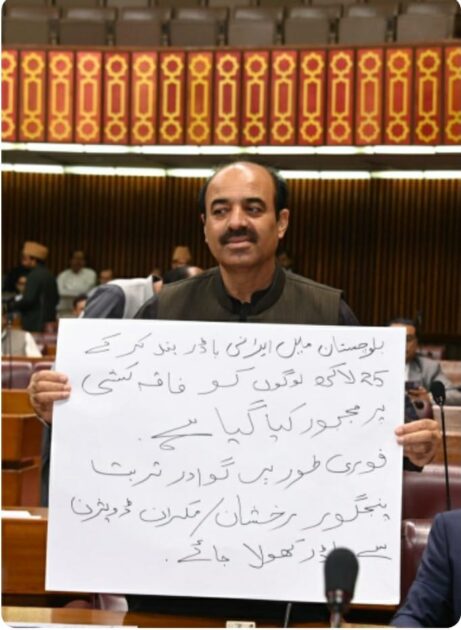 بلوچستان میں ایرانی باڈر بند کر کے
25 لاکھ لوگوں کو فاقہ کشی
پر مجبور کیا گیا ہے۔
فوری طور پر گوادر تربت
پنجگور رخشان/مکران ڈویژن
سے باڈر کھولا جائے۔